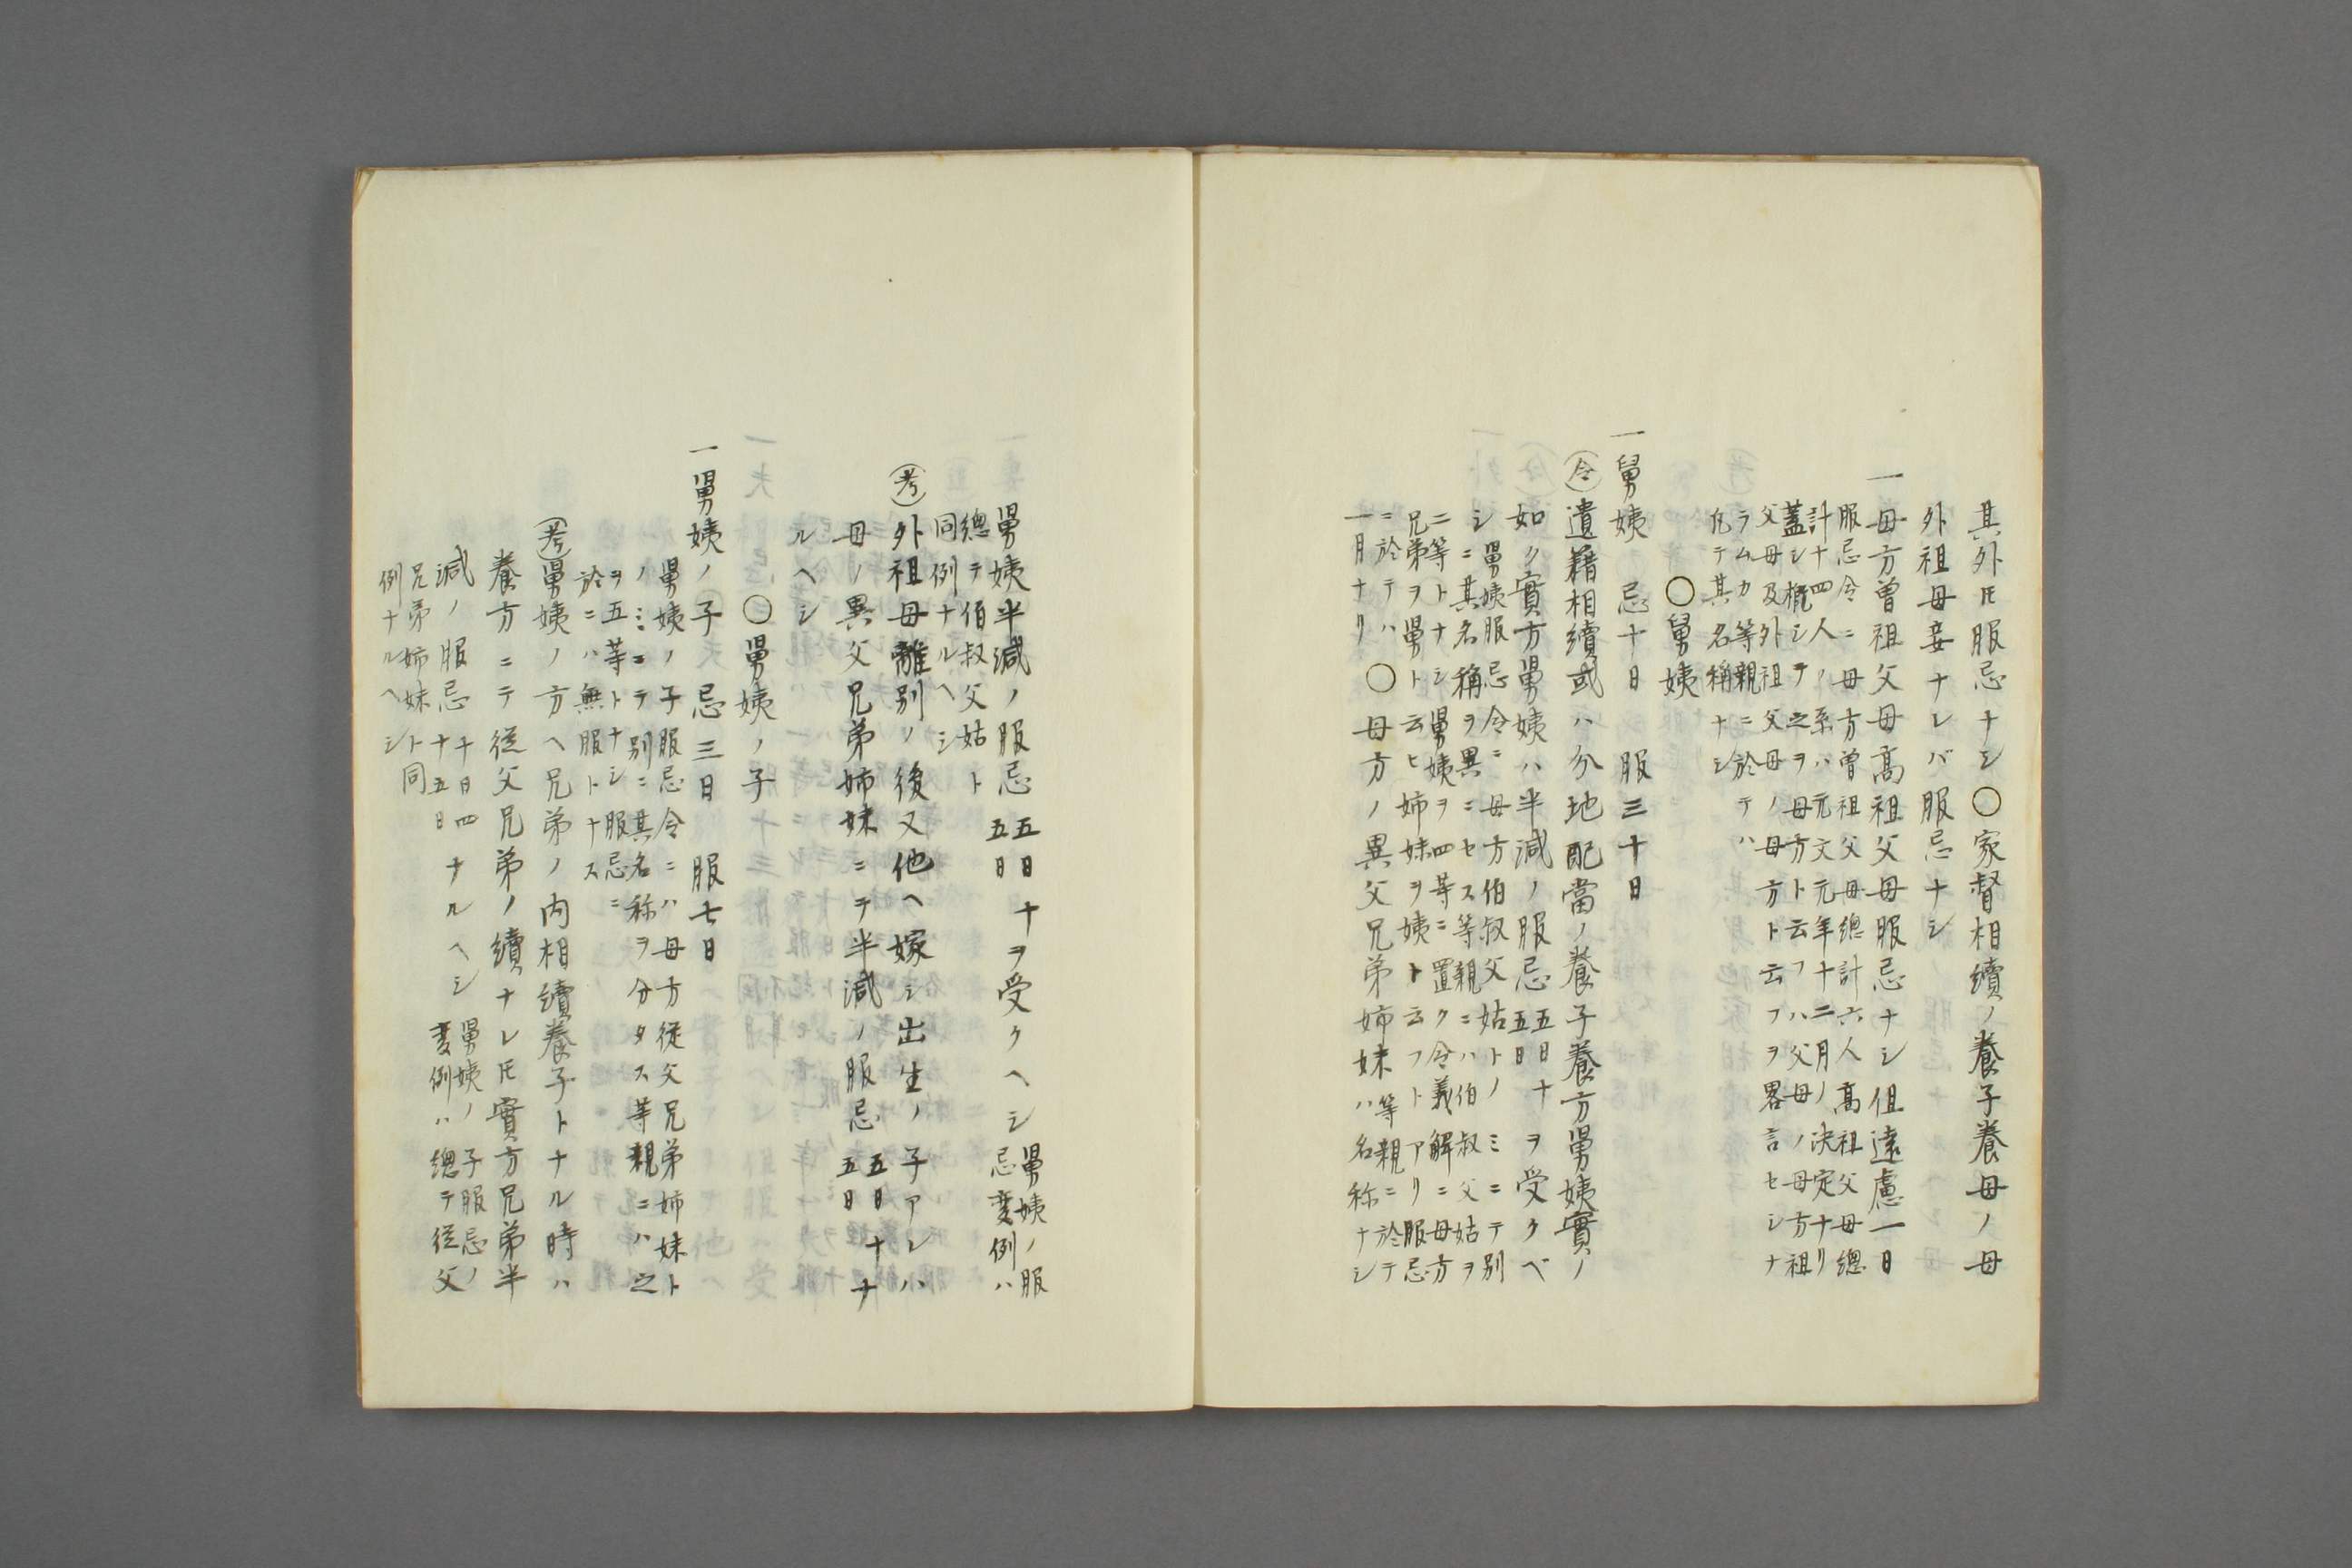 其外𪜈服忌ナシ〇家督相續ノ養子養母ノ母
外祖母妾ナレバ服忌ナシ
一母方曽祖父母髙祖父母服忌ナシ但遠慮一日
服忌令ニ母方曽祖父母總計六人髙祖父母總
計十四人ノ系ハ元文元年十二月ノ決定ナリ
蓋シ概シテ之ヲ母方ト云フハ父母ノ母方祖
父母及外祖父母ノ母方ト云フヲ畧言セシナ
ラムカ等親ニ於テハ
凡テ其名稱ナシ
〇舅姨
一舅姨　忌十日　服三十日
㋿遺籍相續或ハ分地配當ノ養子養方舅姨實ノ
如ク實方舅姨ハ半減ノ服忌五日十五日ヲ受クベ
シ舅姨服忌令ニ母方伯叔父姑トノミニテ別
ニ其名稱ヲ異ニセス等親ニハ伯叔父姑ヲ
二等トナシ舅姨ヲ四等ニ置ク令義解ニ母方
兄弟ヲ舅ト云ヒ姉妹ヲ姨ト云フトアリ服忌
ニ於テハ
一月ナリ
〇母方ノ異父兄弟姉妹ハ等親ニ於テ名称ナシ
舅姨半減ノ服忌五日十五日ヲ受クヘシ舅姨ノ服忌変例ハ
總テ伯叔父姑ト
同例ナルヘシ
(考)外祖母離別ノ後又他ヘ嫁シ出生ノ子アレハ
母ノ異父兄弟姉妹ニテ半減ノ服忌五日十五日ナ
ルヘシ
〇舅姨ノ子
一舅姨ノ子　忌三日　服七日
舅姨ノ子服忌令ニハ母方従父兄弟姉妹ト
ノミニテ別ニ其名称ヲ分タス等親ニハ之
ヲ五等トナシ服忌ニ
於ニハ無服トナス
(考)舅姨ノ方ヘ兄弟ノ内相續養子トナル時ハ
養方ニテ従父兄弟ノ續ナレ𪜈實方兄弟半
減ノ服忌十日四十五日ナルヘシ舅姨ノ子服忌ノ変例ハ總テ従父
兄弟姉妹ト同
例ナルヘシ